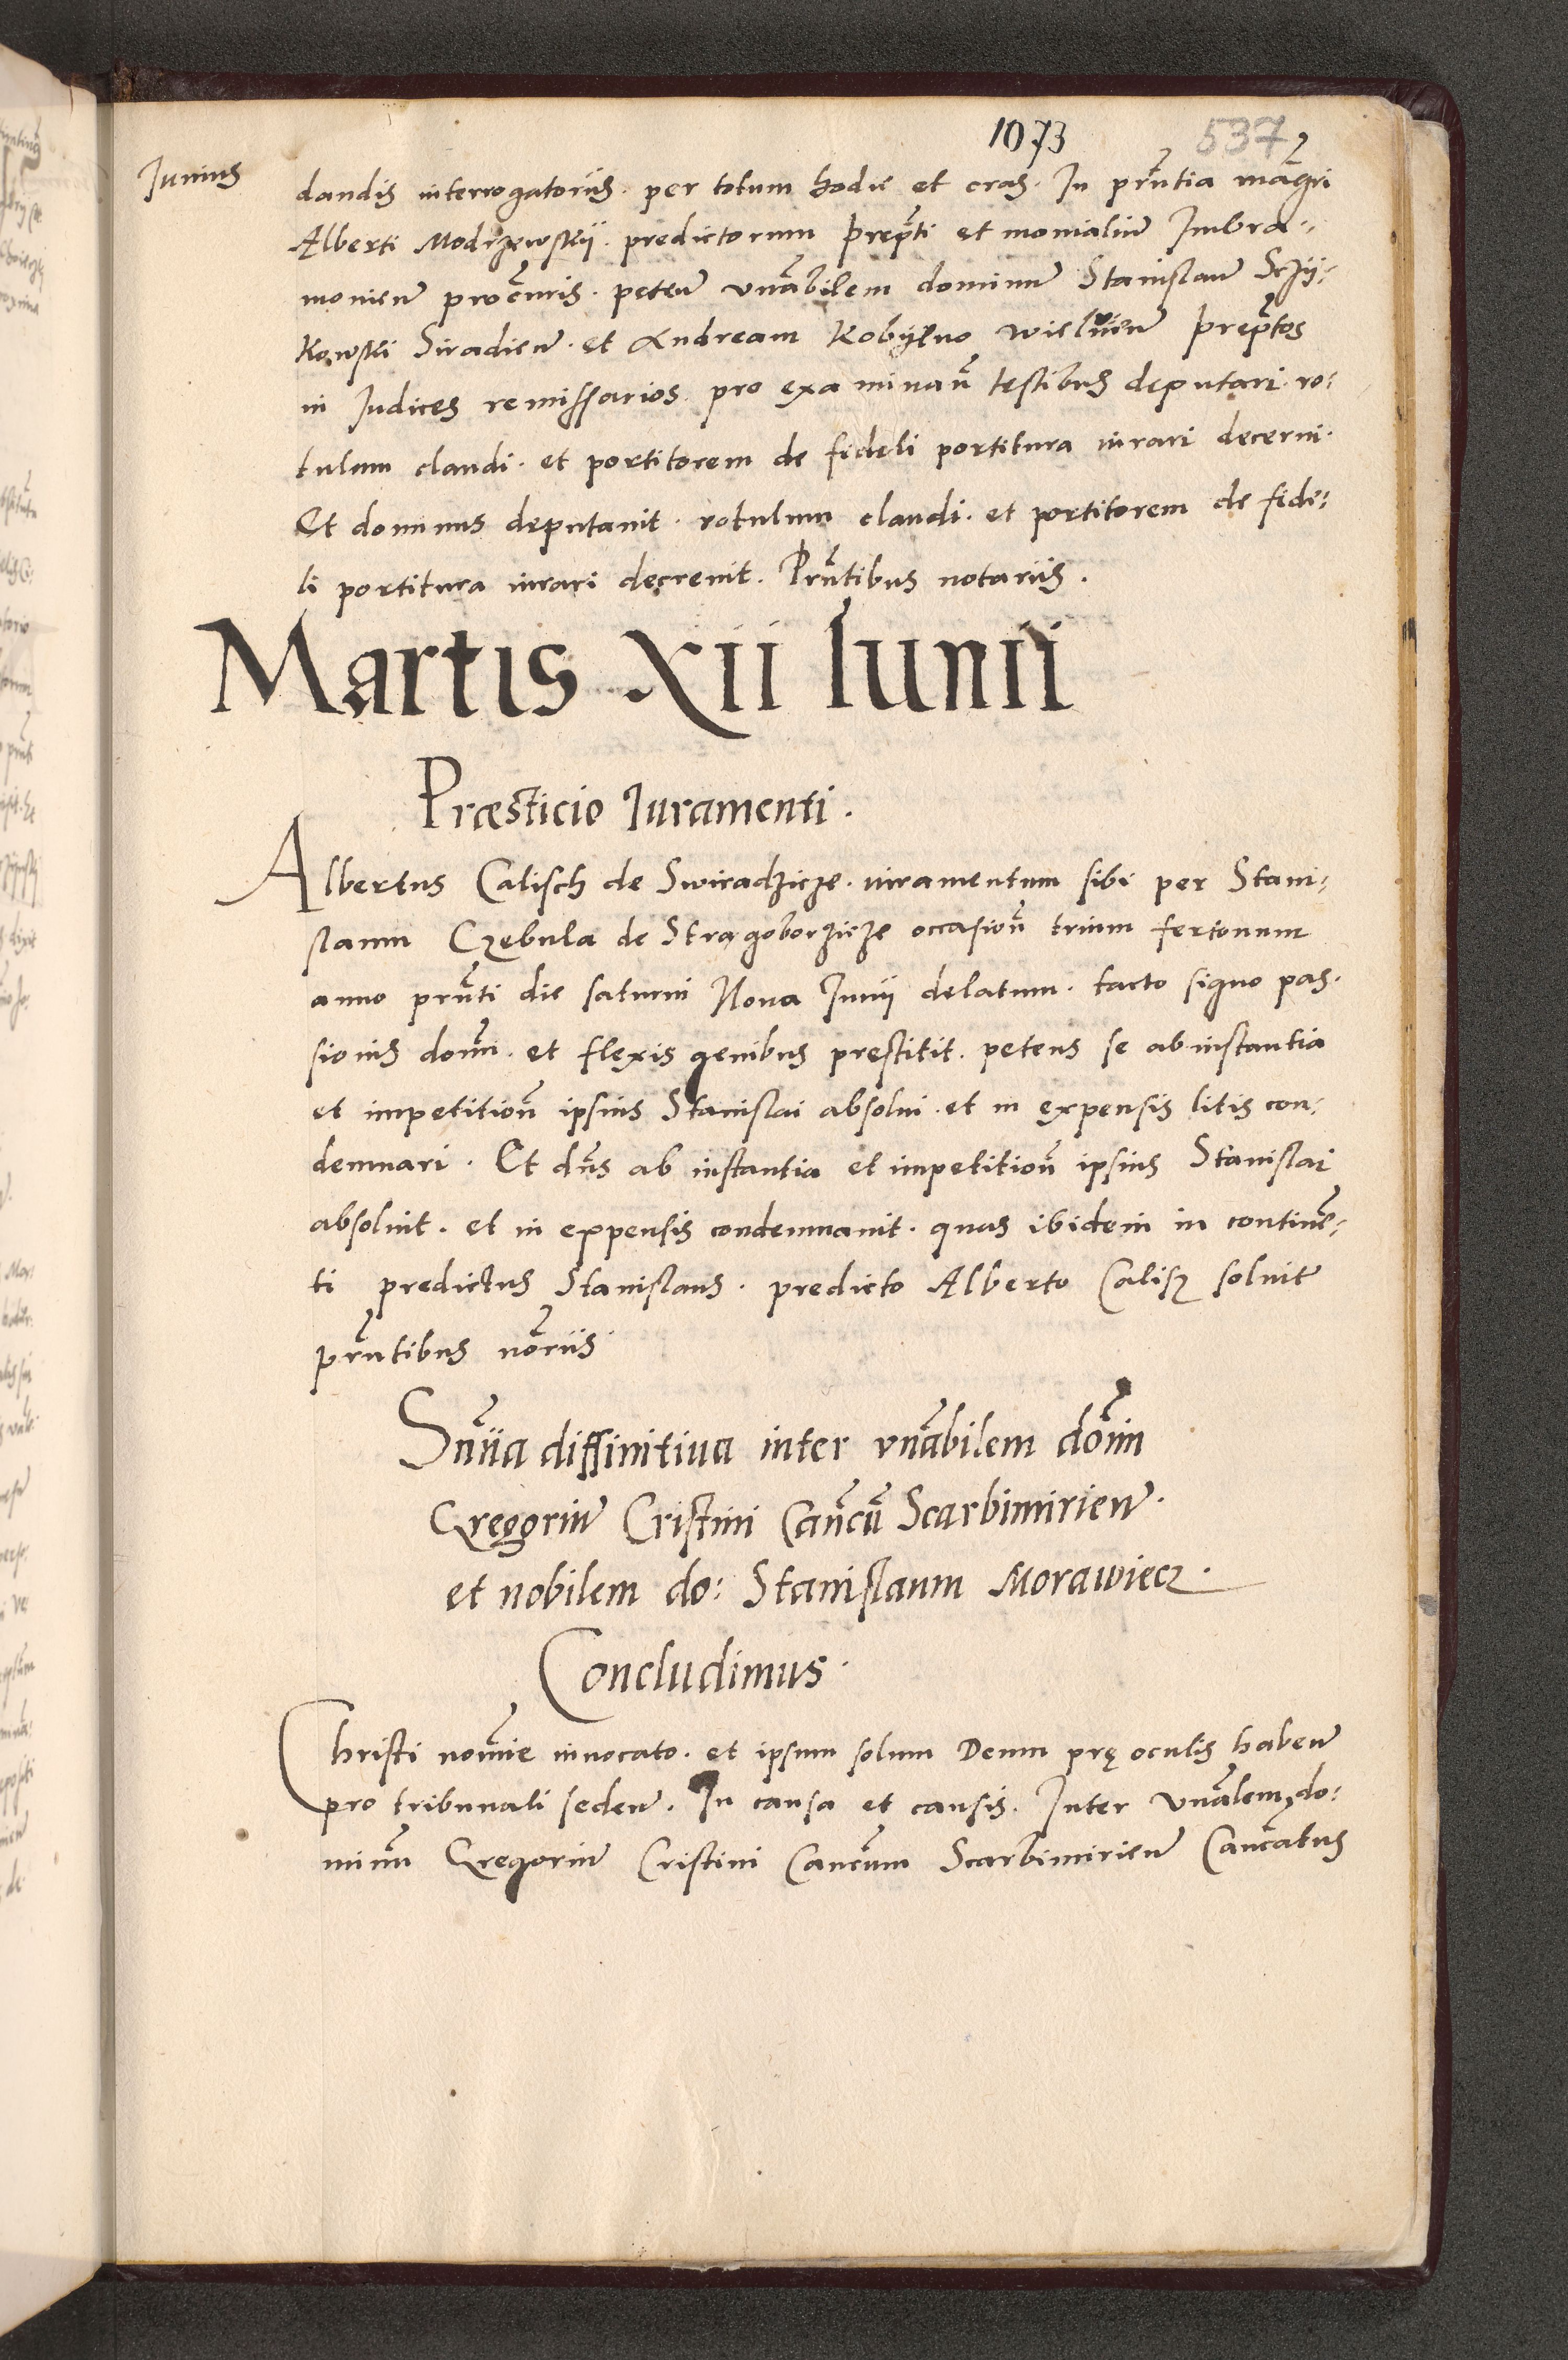 1073 537
Junius
dandis interrogatoriis. per totum hodie et cras. In pr̃ntia mãgri
Alberti Modrzewskij. predictorum prep̃ti et monialiũ Imbra-
monieñ procũris. peteñ vnãbilem dominũ Stanislaũ Sczÿ-
kowski Siradieñ. et Andream Kobÿlno prep̃tos
in Judices remissarios. pro examinañ testibus deputari. ro-
tulum claudi. et portitorem de fideli portitura iurari decerni.
Et dominus deputauit. rotulum claudi. et portitorem de fide-
li portitura iurari decreuit. Pr̃ntibus notariis.
Martis xii Iunii
Præsticio Iuramenti.
Albertus Calisch de Swiradzicze. iuramentum sibi per Stani-
slaum Czebula de Stragoborzicze occasioñ trium fertonum
anno pr̃nti die saturni Nona Junij delatum. facto signo pas-
sionis domĩ. et flexis genibus prestitit. petens se ab instantia
et impetitioñ ipsius Stanislai absolui. et in expensis litis con-
demnari. Et dñs ab instantia et impetitioñ ipsius Stanislai
absoluit. et in expensis condemnauit. quas ibidem in continẽ-
ti predictus Stanislaus. predicto Alberto Calisz soluit
pr̃ntibus nõriis
Snĩia diffinitiua inter vnãbilem dom̃
Gregoriũ Cristini Cañcũ Scarbimirieñ.
et nobilem do: Stanislaum Morawiecz.
Concludimus.
Christi nomĩe inuocato. et ipsum solum Deum prę oculis habeñ
pro tribunali sedeñ. In causa et causis. Inter vnãlem do-
minũ Gregoriũ Cristini Cañcum Scarbimirieñ Cañcabus